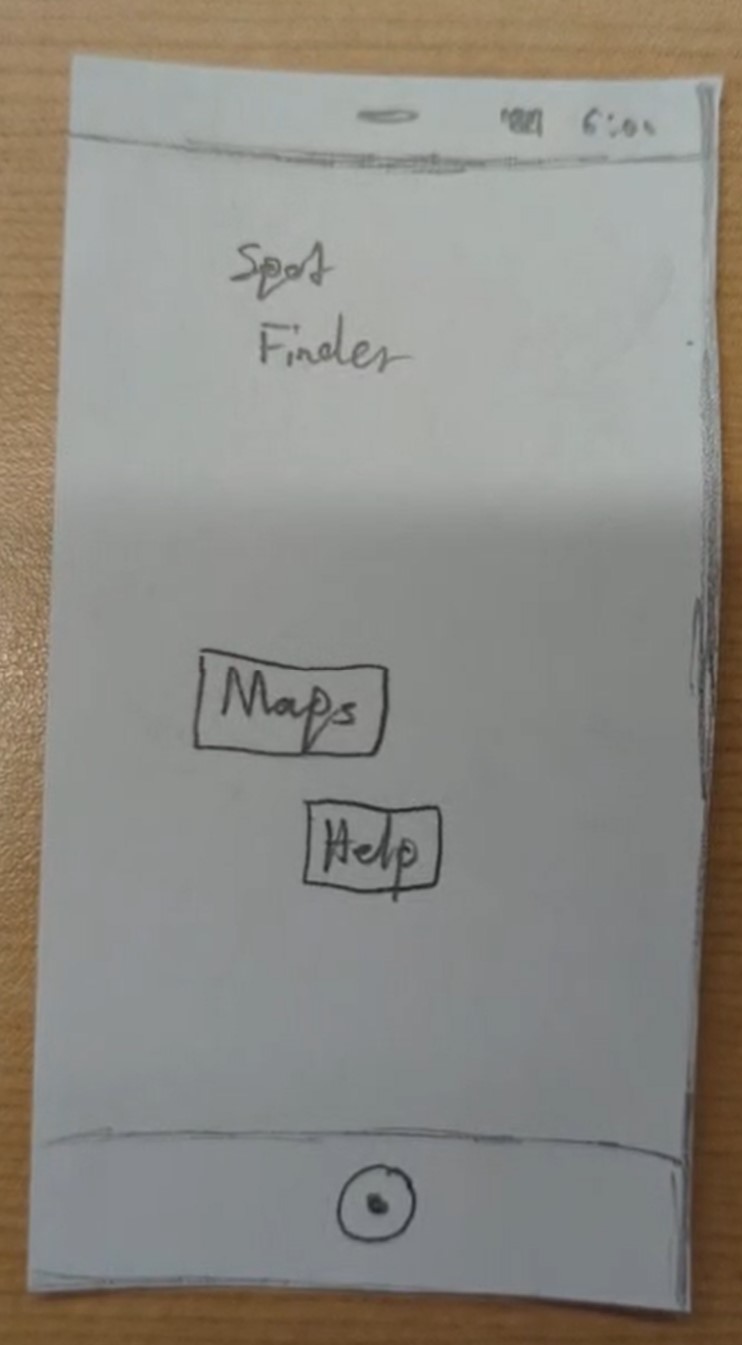 6:00
Spot
Finder
Maps
Help